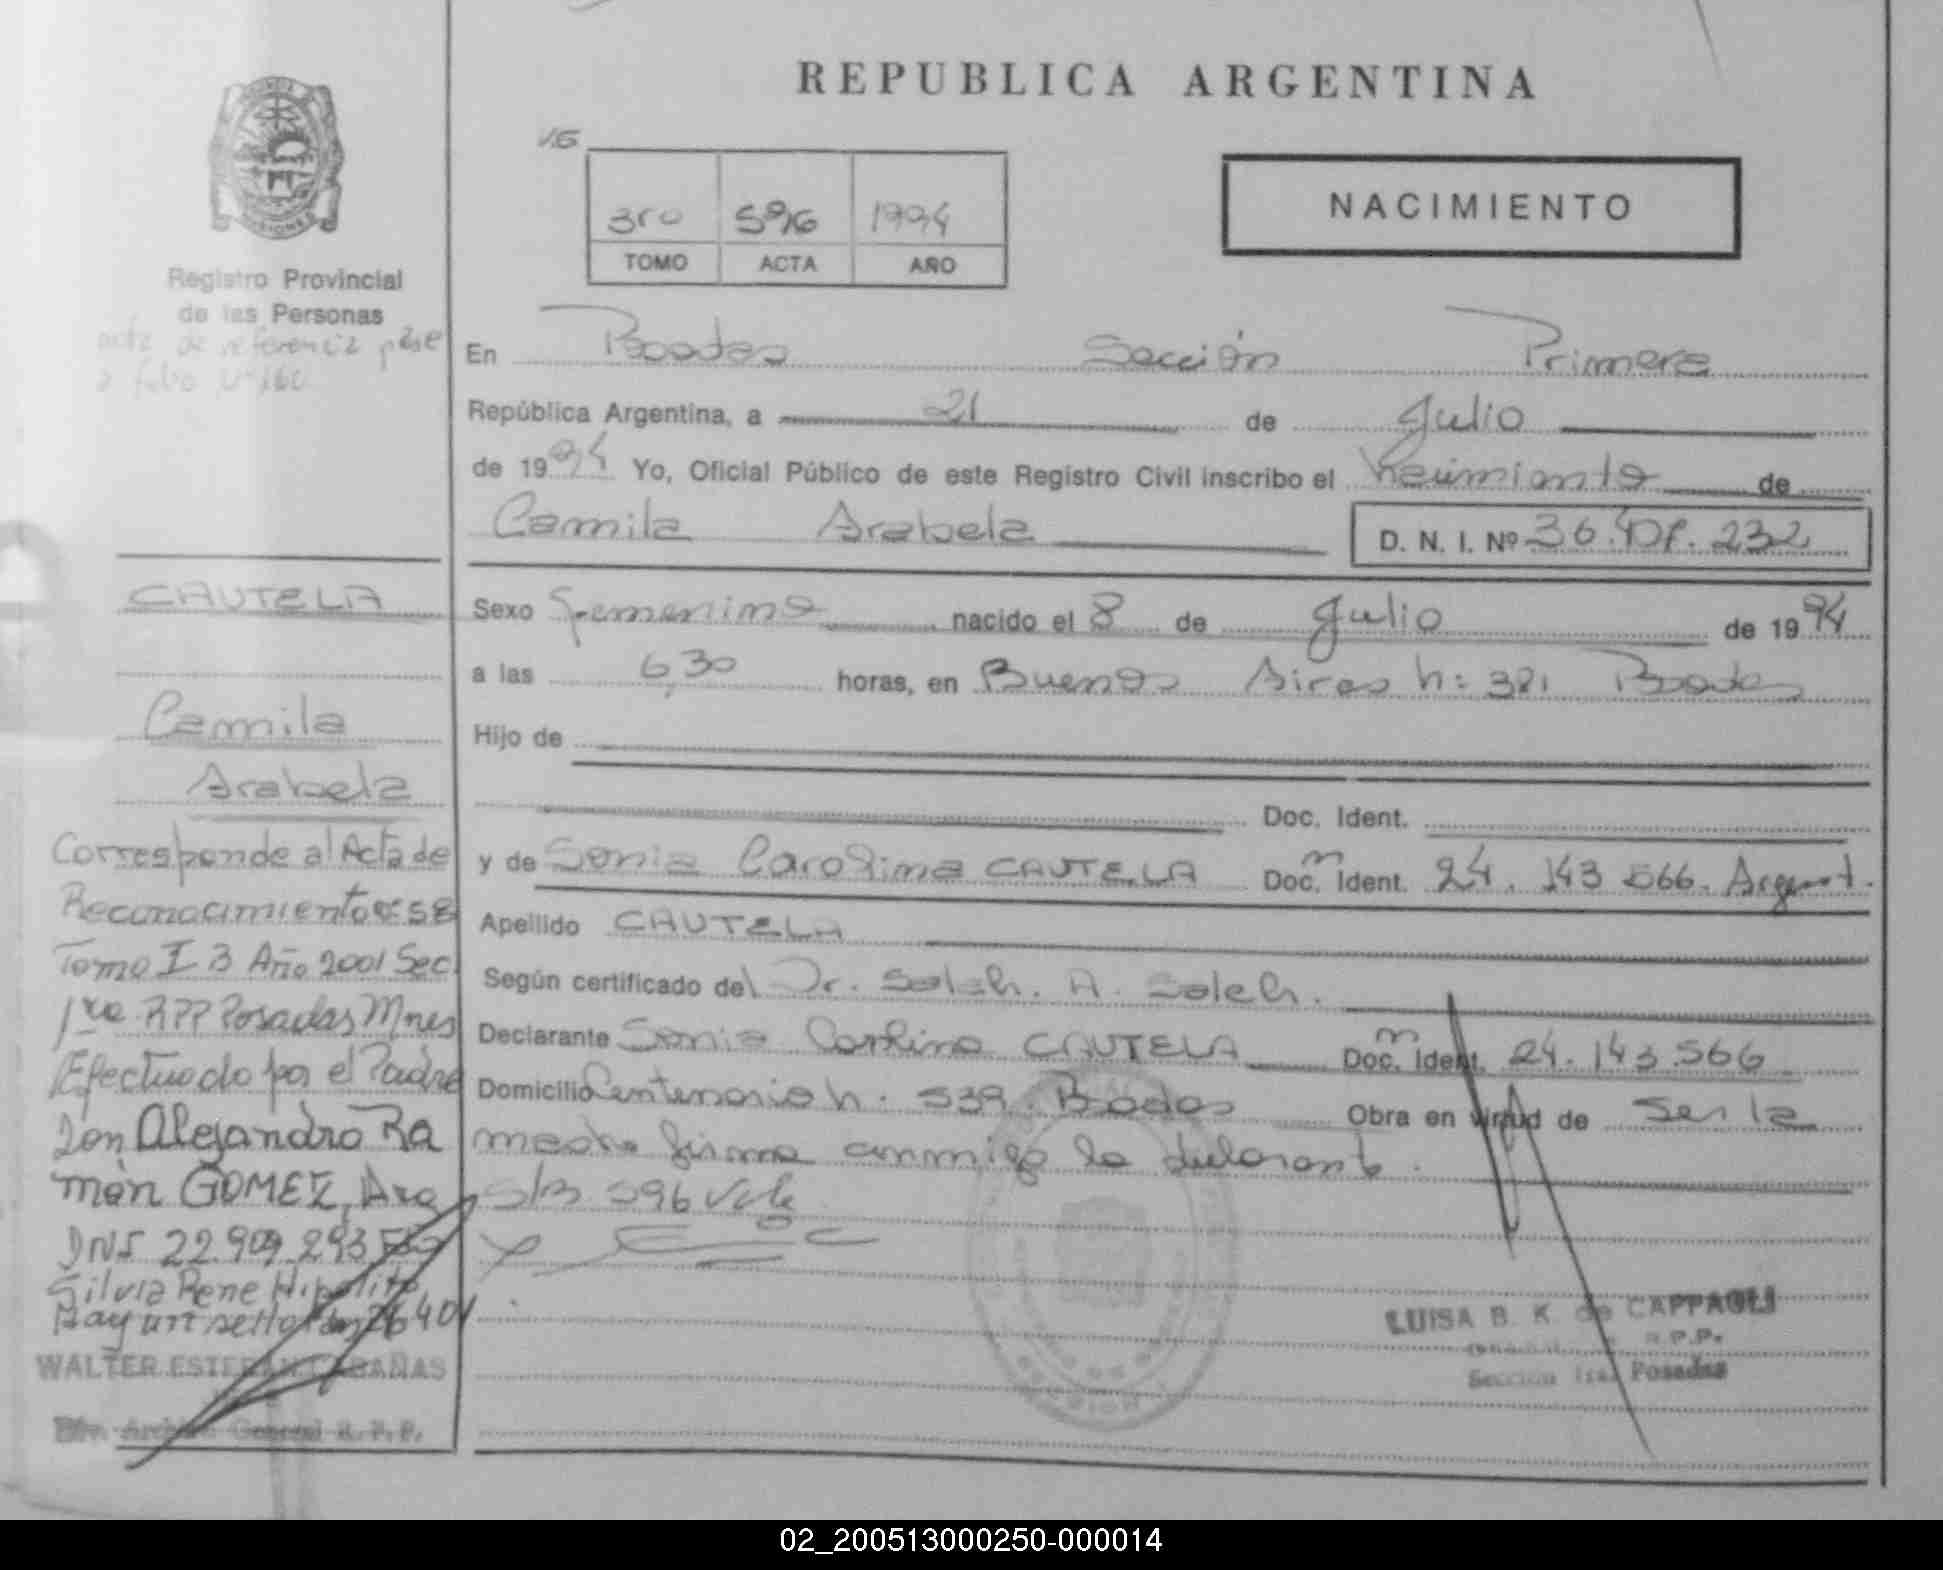 REPUBLICA ARGENTINA
NACIMIENTO
3ro 596 1994
TOMO ACTA AÑO
Registro Provincial
de las Personas
nota de referencia pase
a folio Nº 160
En Posadas Sección Primera
República Argentina, a 21 de Julio
de 1994 Yo, Oficial Público de este Registro Civil inscribo el Nacimiento de
Camila Arabela D. N. I. Nº 36.409.232
Sexo Femenino nacido el 8 de Julio de 1994
a las 6,30 horas, en Buenos Aires n: 381 Posadas
Hijo de
Doc. Ident.
y de Sonia Carolina CAUTELA Doc. Ident. 24.143.566. Argent.
Apellido CAUTELA
Según certificado del Dr. Saleh. A. Saleh.
Declarante Sonia Carolina CAUTELA Doc. Ident. 24.143.566
Domicilio Centenario n. 539. Posadas Obra en virtud de ser la
madre firma conmigo la declarante.
S/B 596 Vale
CAUTELA
Camila
Arabela
Corresponde al Acta de
Reconocimiento 58
Tomo I 3 Año 2001 Sec.
1ra RPP Posadas Mnes
Efectuado por el Padre
Don Alejandro Ra
món GOMEZ, Arg
DNI 22.909.293
Silvia Rene Hipolito
Hay un sello
WALTER ESTEBAN CABAÑAS
Div. Archivo General R. P. P.
LUISA B. K. de CAPPAGLI
R.P.P.
Sección 1ra. Posadas
02_200513000250-000014